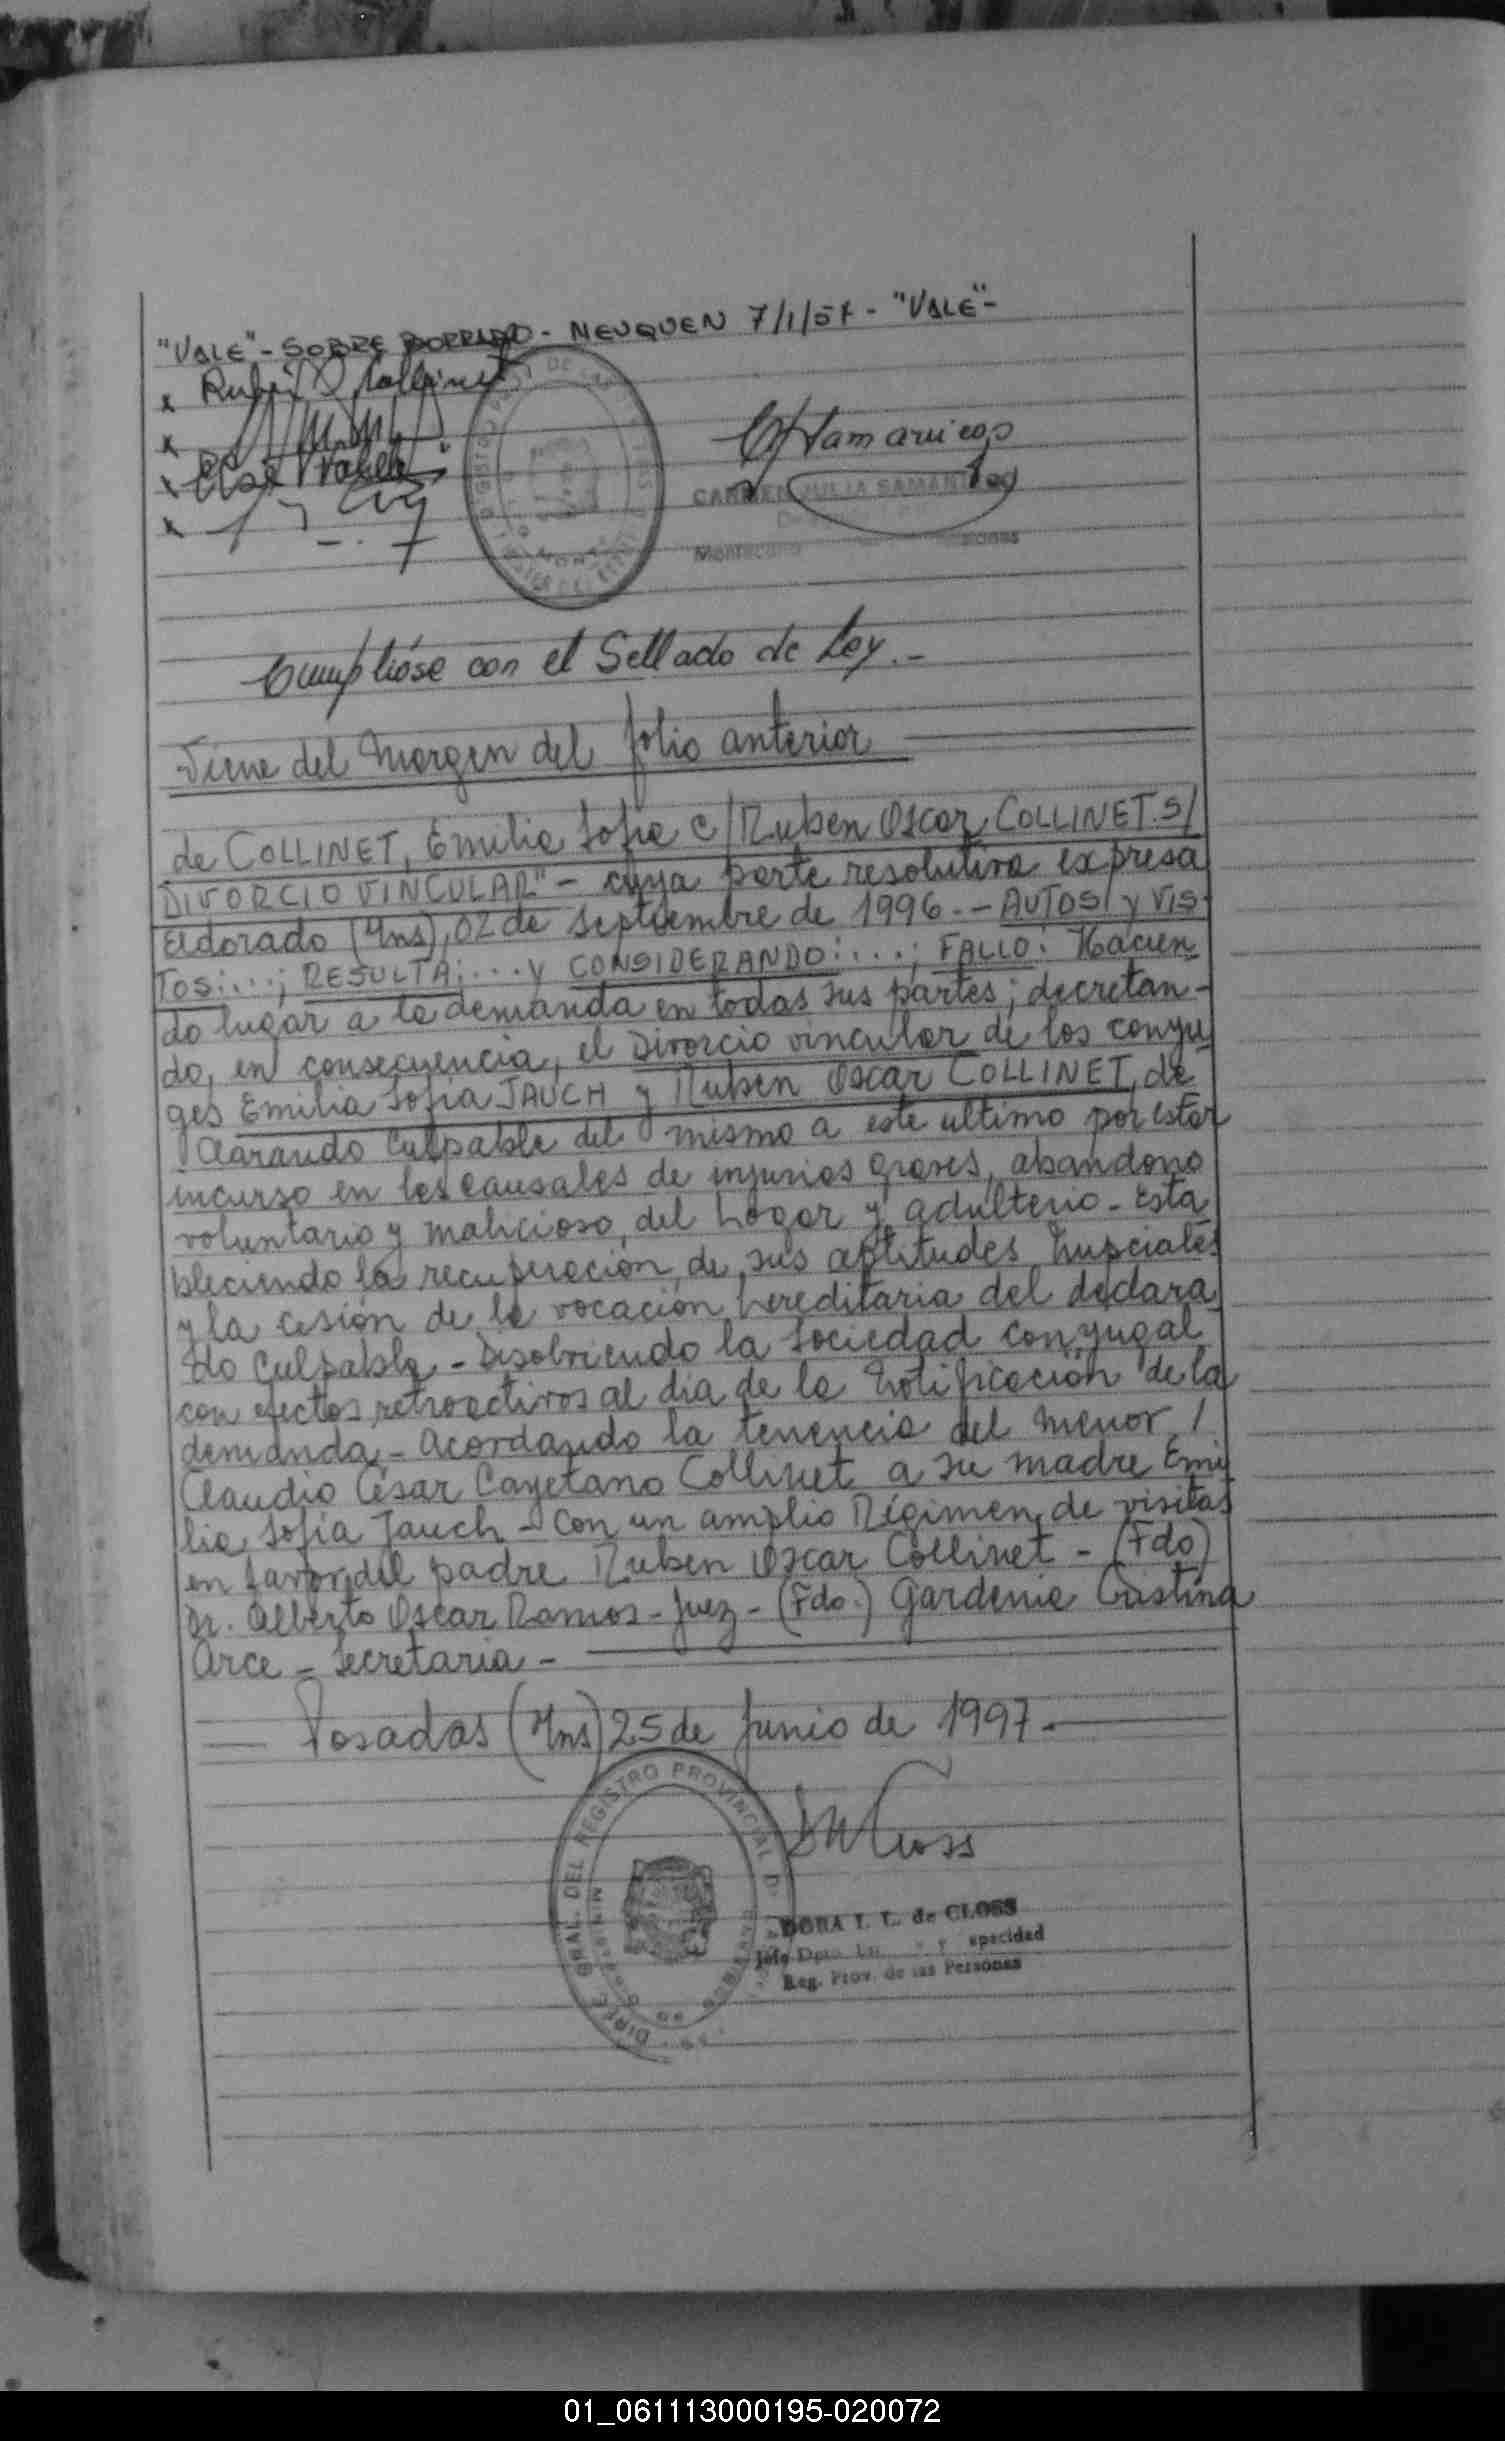 "VALE"- SOBRE BORRADO - NEUQUEN 7/1/57 - "VALE"-
x Ruben O Collinet
x
x
x
CARMEN JULIA SAMAN
Cumplióse con el Sellado de Ley.-
Viene del Margen del folio anterior
de COLLINET, Emilia Sofia C/ Ruben Oscar COLLINET. S/
DIVORCIO VINCULAR" - cuya parte resolutiva expresa
Eldorado (Mns), 02 de septiembre de 1996.- AUTOS y VIS-
TOS:...; RESULTA:... y CONSIDERANDO:...; FALLO: Hacien
do lugar a la demanda en todas sus partes; decretan-
do, en consecuencia, el Divorcio vincular de los conyu
ges Emilia Sofia JAUCH y Ruben Oscar COLLINET, de
clarando Culpable del mismo a este ultimo por estar
incurso en las causales de injurias graves, abandono
voluntario y malicioso, del hogar y adulterio - Esta
bleciendo la recuperación de sus aptitudes nupciales
y la cesión de la vocación hereditaria del declara
do Culpable - Disolviendo la sociedad conyugal
con efectos retroactivos al dia de la notificación de la
demanda - Acordando la tenencia del menor /
Claudio César Cayetano Collinet a su madre Emi
lia Sofia Jauch - Con un amplio Régimen de visitas
en favor del padre Ruben Oscar Collinet - (Fdo)
Dr. Alberto Oscar Ramos - Juez - (Fdo.) Gardenia Cristina
Arce - Secretaria -
Posadas (Mns) 25 de Junio de 1997.-
DIREC GRAL. DEL REGISTRO PROVINCIAL D
DORA T. T. de CLOSS
Jefe Dpto. apacidad
Reg. Prov. de las Personas
01_061113000195-020072